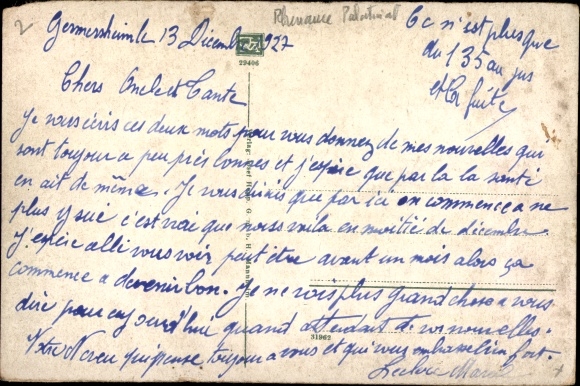 2
Rhénanie Palatinat
Germersheim le 13 Décembre 1927
Ce n'est plus que
du 135 au jus
et la fuite
29406
Chers Oncle et Tante
Je vous écris ces deux mots pour vous donnez de mes nouvelles qui
sont toujour a peu près bonnes et j'espère que par la la santé
en ait de même. Je vous dirais que par ici on commence a ne
plus y sué c'est vrai que nous voila en moitié de décembre.
J'espère allé vous voir peut être avant un mois alors ça
commence a devenir bon. Je ne vois plus grand chose a vous
dire pour aujourd'hui quand attendant de vos nouvelles.
Votre Neveu qui pense toujour a vous et qui vous embrasse bien fort.
31962